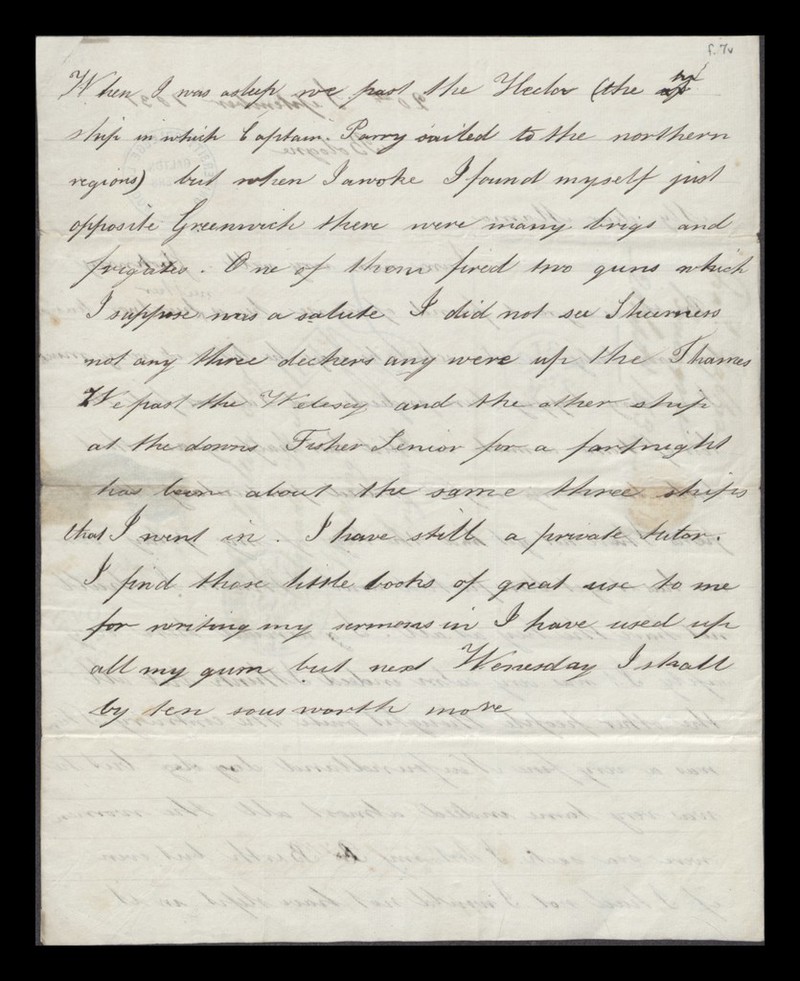 f. 7v
When I was asleep we past the Hecler (the
ship in which Captain. Parry sailed to the northern
regions) but when I awoke I found myself just
opposite Greenwich there were many brigs and
frigates. One of them fired two guns which
I suppose was a salute I did not see Sheerness
not any three deckers any were up the Thames
We past the Welesey and the other ship
at the downs Fisher Senior for a fortnight
has been about the same three ships
that I went in. I have still a private tutor.
I find those little books of great use to me
for writing my sermons in I have used up
all my gum but next Wenesday I shall
by ten sous worth more